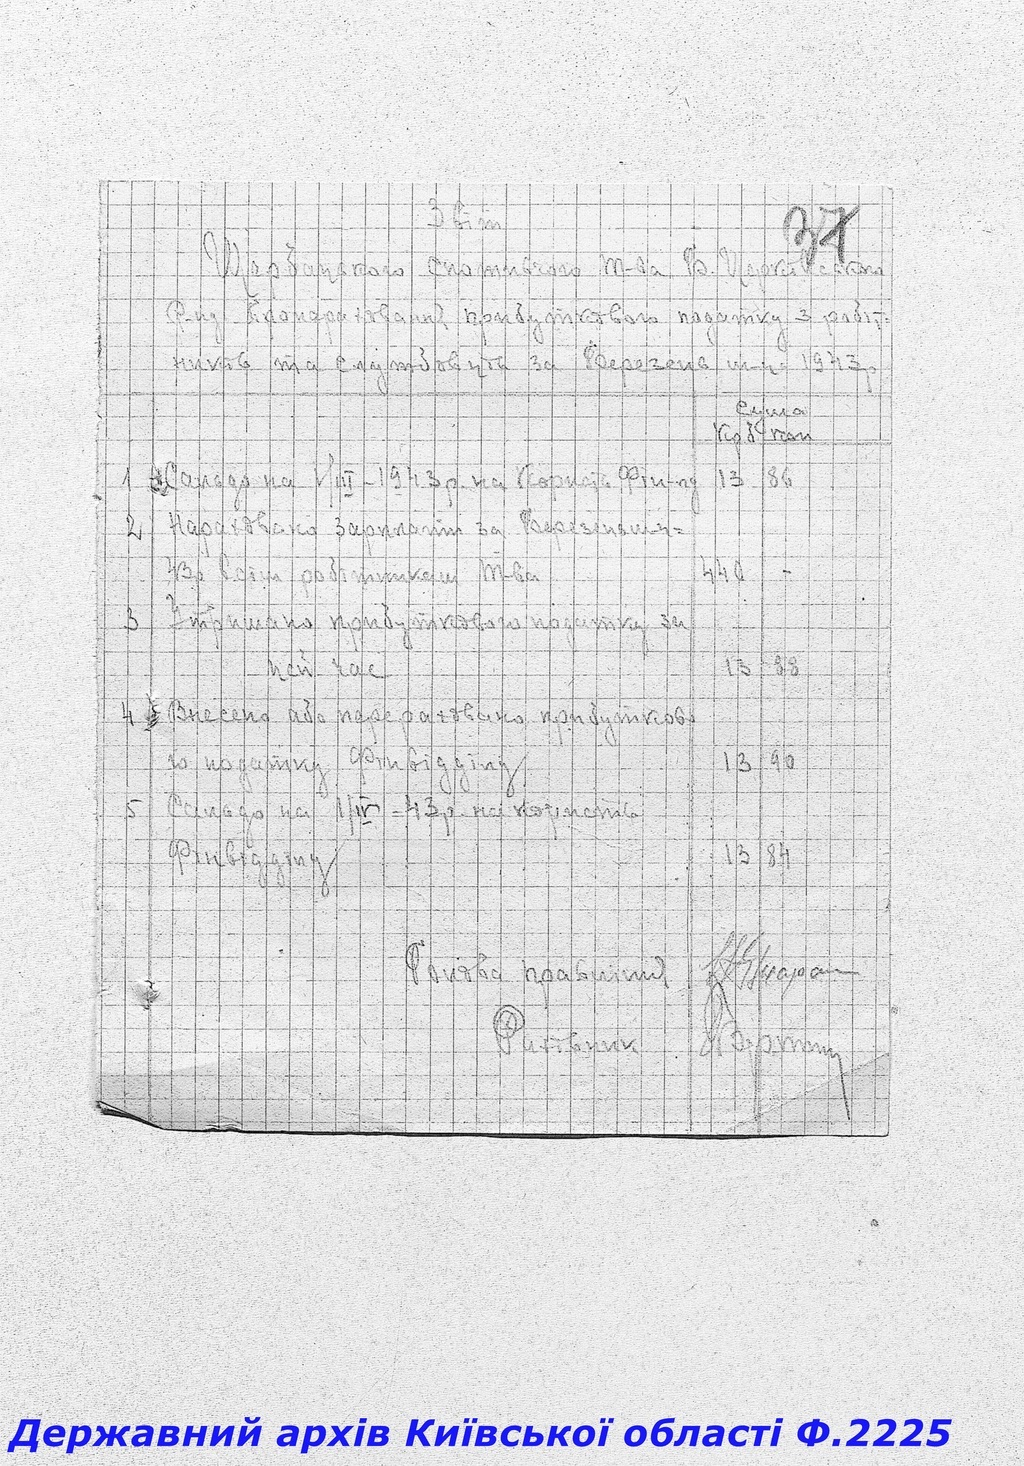 Звіт
37
Щербацького Споживчого т-ва Б. Церківського
Р-ну прибуткового податку з робіт-
ників та службовців за Березень м-ць 1943р
Сума
Крб коп
1 Сальдо на 1/III-1943р. на Користь Фін-ду 13 86
2 Нараховано Зарплати за Березень м-ц=
43р Всім робітникам т-ва 440 -
3 Утримано прибуткового податку за
цей час 13 88
4 Внесено або перераховано прибутково
го податку Фінвідділу 13 90
5 Сальдо на 1/IV-43р. на користь
Фінвідділу 13 84
Голова правління
Рахівник
Державний архів Київської області Ф.2225